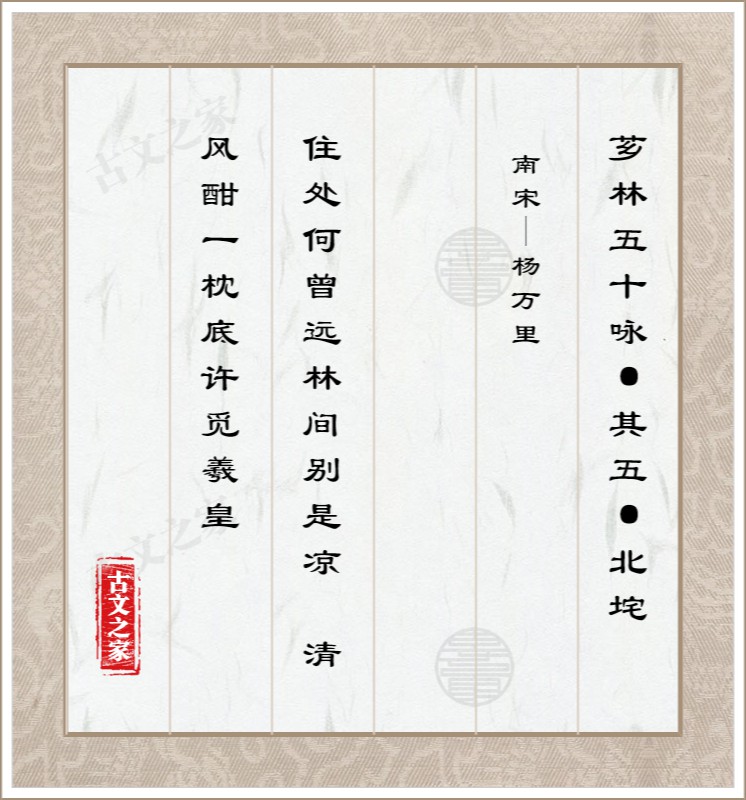 芗林五十咏●其五●北垞
南宋—杨万里
住处何曾远林间别是凉 清
风酣一枕底许觅羲皇
古文之家
古文之家
古文之家